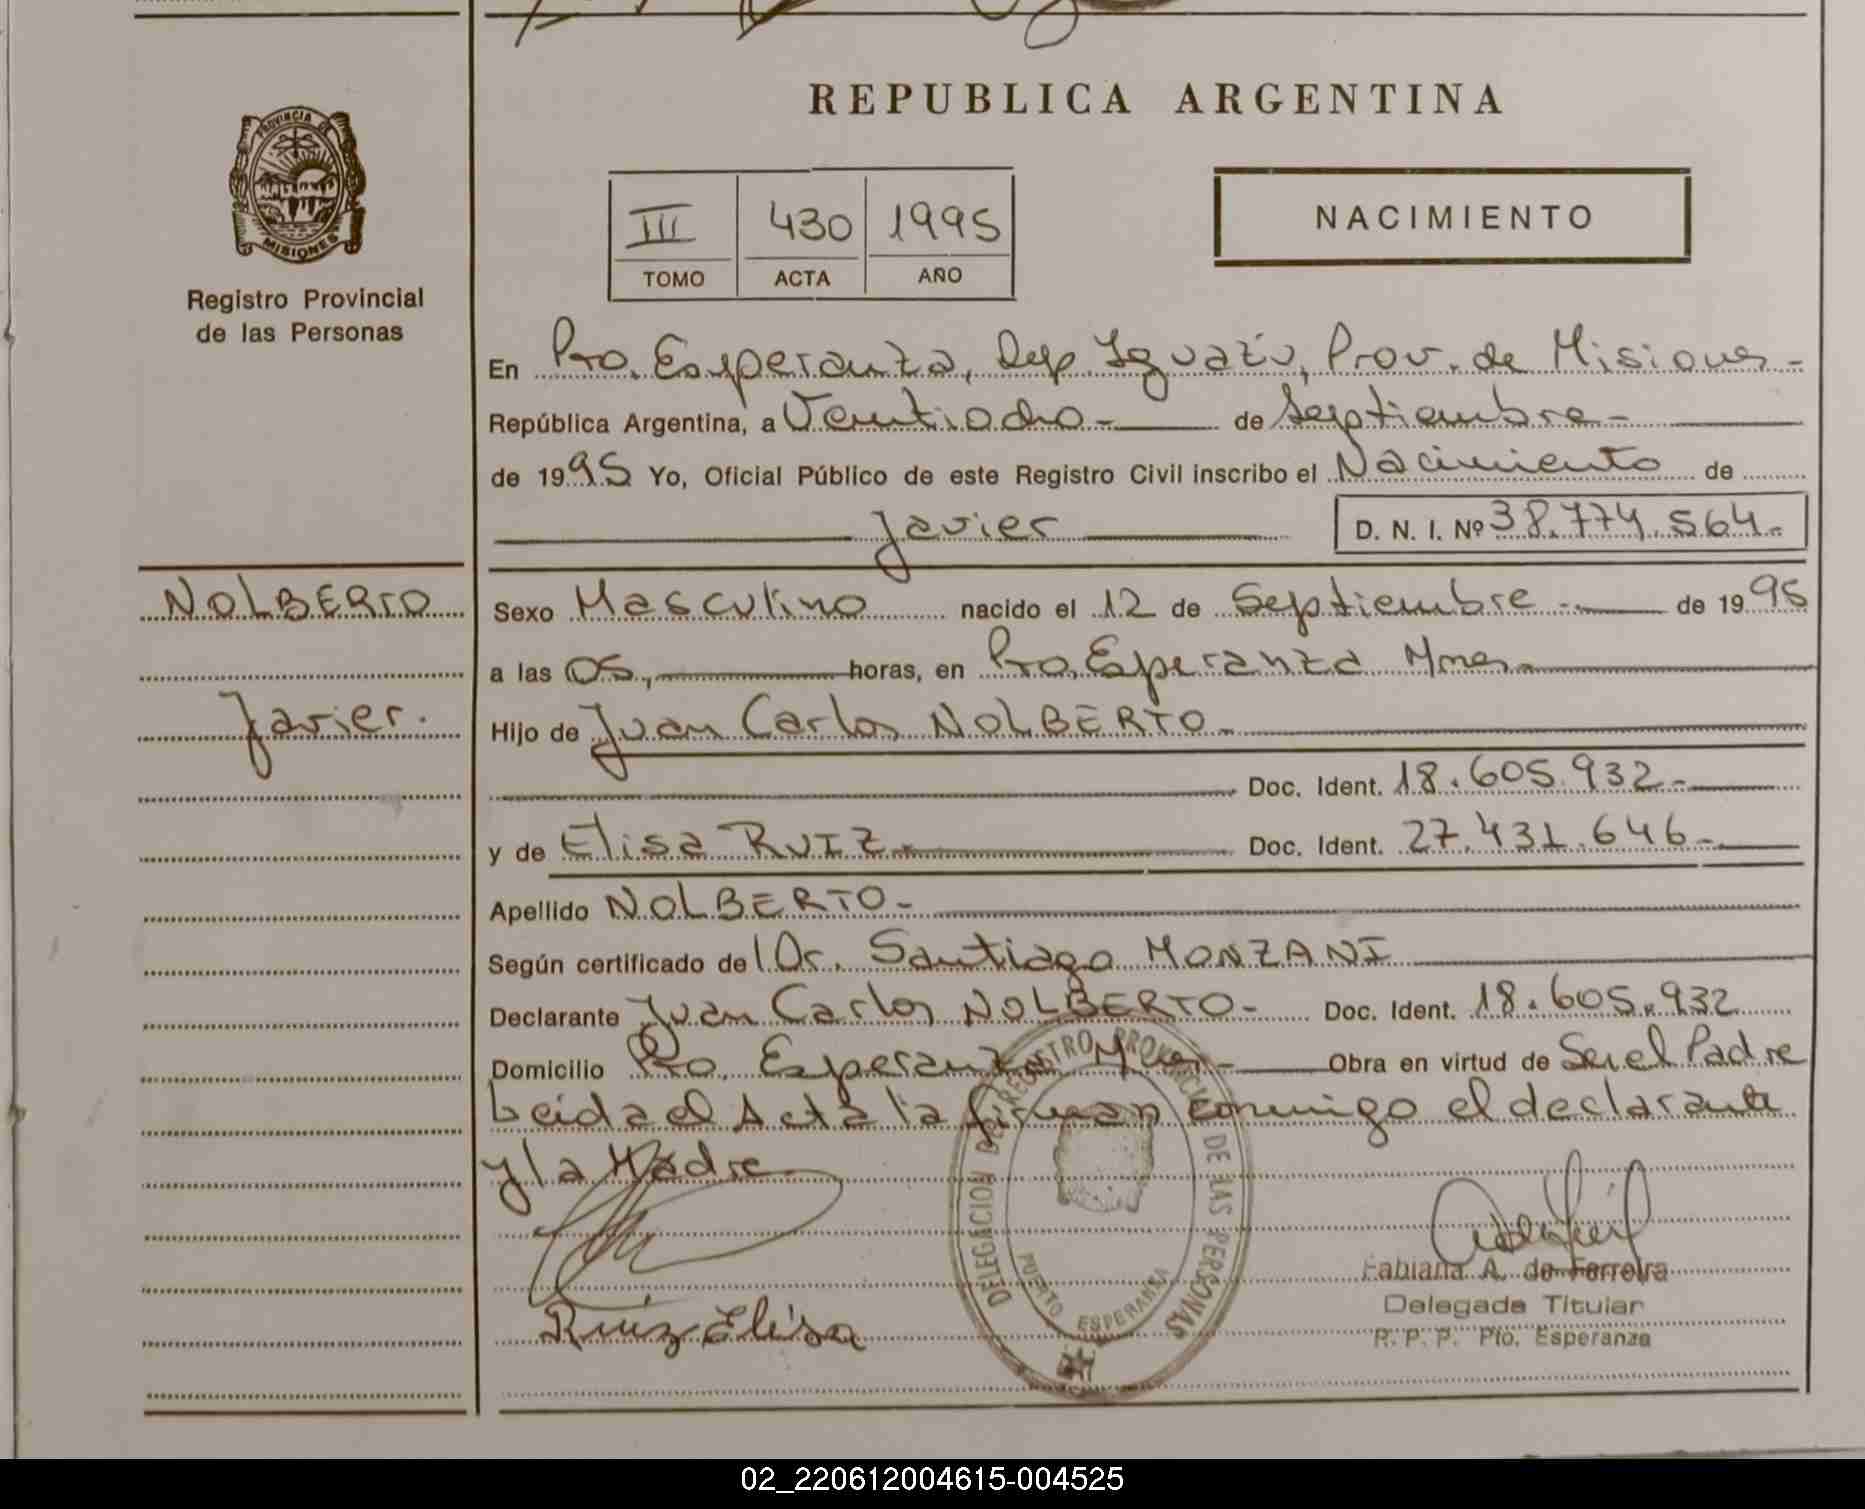 REPUBLICA ARGENTINA
PROVINCIA DE
MISIONES
Registro Provincial
de las Personas
III 430 1995
TOMO ACTA AÑO
NACIMIENTO
En Pto. Esperanza, Dep. Iguazú, Prov. de Misiones-
República Argentina, a Ventiocho- de Septiembre-
de 1995 Yo, Oficial Público de este Registro Civil inscribo el Nacimiento de
Javier D. N. I. Nº 38.774.564.-
NOLBERTO
Javier.
Sexo Masculino nacido el 12 de Septiembre- de 1995
a las 05, horas, en Pto. Esperanza Mnes-
Hijo de Juan Carlos NOLBERTO-
Doc. Ident. 18.605.932-
y de Elisa RUIZ- Doc. Ident. 27.431.646-
Apellido NOLBERTO-
Según certificado del Dr. Santiago MONZANI
Declarante Juan Carlos NOLBERTO- Doc. Ident. 18.605.932
Domicilio Pto. Esperanza Mnes- Obra en virtud de Ser el Padre
Leida el Acta la firman conmigo el declarante
y la Madre
Ruiz Elisa
DELEGACION DEL REGISTRO PROVINCIAL DE LAS PERSONAS
PUERTO ESPERANZA
Fabiana A. de Ferreira
Delegada Titular
R. P. P. Pto. Esperanza
02_220612004615-004525